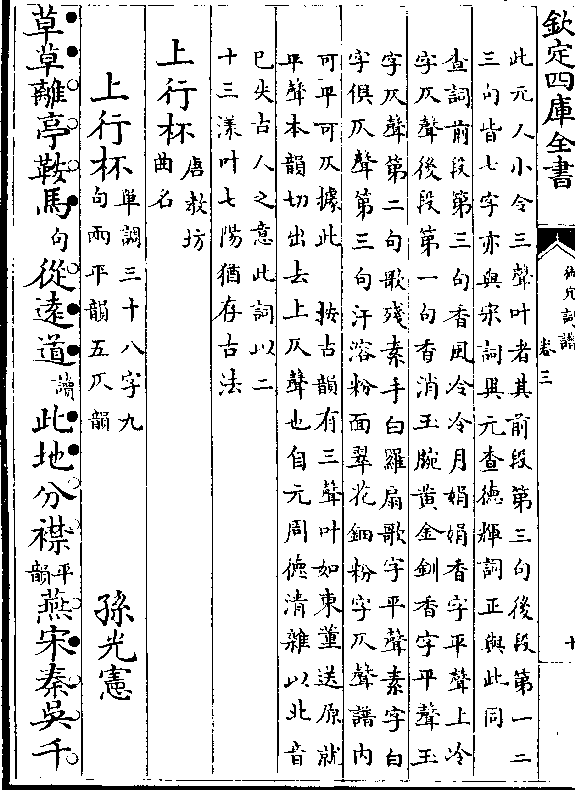 欽定四庫全書
御定詞譜
卷三
十
此元人小令三聲叶者其前段第三句後段第一二
三句皆七字亦與宋詞異元查德輝詞正與此同
查詞前段第三句香風冷冷月娟娟香字平聲上冷
字仄聲後段第一句香消玉腕黃金釧香字平聲玉
字仄聲第二句歌殘素手白羅扇歌字平聲素字白
字俱仄聲第三句汗溶粉面翠花鈿粉字仄聲譜內
可平可仄據此　按古韻有三聲叶如東董送原就
平聲本韻切出去上仄聲也自元周德清雜以北音
已失古人之意此詞以二
十三漾叶七陽猶存古法
上行杯
唐教坊
曲名
上行杯
單調三十八字九
句兩平韻五仄韻
孫光憲
草草離亭鞍馬句從遠道讀此地分襟平韻燕宋秦吳千